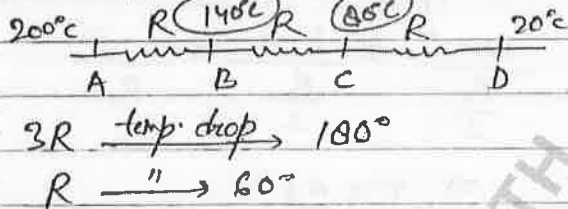 200°c R 140°c R 80°c R 20°c
A B C D
3R temp. drop → 180°
R " → 60°
TH